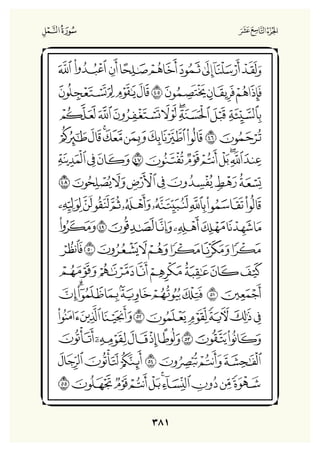 الجزء التاسع عشر
سورة النمل
وَلَقَدْ أَرْسَلْنَا إِلَىٰ ثَمُودَ أَخَاهُمْ صَالِحًا أَنِ اعْبُدُوا اللَّهَ
فَإِذَا هُمْ فَرِيقَانِ يَخْتَصِمُونَ ٤٥ قَالَ يَا قَوْمِ لِمَ تَسْتَعْجِلُونَ
بِالسَّيِّئَةِ قَبْلَ الْحَسَنَةِ ۖ لَوْلَا تَسْتَغْفِرُونَ اللَّهَ لَعَلَّكُمْ
تُرْحَمُونَ ٤٦ قَالُوا اطَّيَّرْنَا بِكَ وَبِمَن مَّعَكَ ۚ قَالَ طَائِرُكُمْ
عِندَ اللَّهِ ۖ بَلْ أَنتُمْ قَوْمٌ تُفْتَنُونَ ٤٧ وَكَانَ فِي الْمَدِينَةِ
تِسْعَةُ رَهْطٍ يُفْسِدُونَ فِي الْأَرْضِ وَلَا يُصْلِحُونَ ٤٨
قَالُوا تَقَاسَمُوا بِاللَّهِ لَنُبَيِّتَنَّهُ وَأَهْلَهُ ثُمَّ لَنَقُولَنَّ لِوَلِيِّهِ
مَا شَهِدْنَا مَهْلِكَ أَهْلِهِ وَإِنَّا لَصَادِقُونَ ٤٩ وَمَكَرُوا
مَكْرًا وَمَكَرْنَا مَكْرًا وَهُمْ لَا يَشْعُرُونَ ٥٠ فَانظُرْ
كَيْفَ كَانَ عَاقِبَةُ مَكْرِهِمْ أَنَّا دَمَّرْنَاهُمْ وَقَوْمَهُمْ
أَجْمَعِينَ ٥١ فَتِلْكَ بُيُوتُهُمْ خَاوِيَةً بِمَا ظَلَمُوا ۗ إِنَّ
فِي ذَٰلِكَ لَآيَةً لِّقَوْمٍ يَعْلَمُونَ ٥٢ وَأَنجَيْنَا الَّذِينَ آمَنُوا
وَكَانُوا يَتَّقُونَ ٥٣ وَلُوطًا إِذْ قَالَ لِقَوْمِهِ أَتَأْتُونَ
الْفَاحِشَةَ وَأَنتُمْ تُبْصِرُونَ ٥٤ أَئِنَّكُمْ لَتَأْتُونَ الرِّجَالَ
شَهْوَةً مِّن دُونِ النِّسَاءِ ۚ بَلْ أَنتُمْ قَوْمٌ تَجْهَلُونَ ٥٥
٣٨١